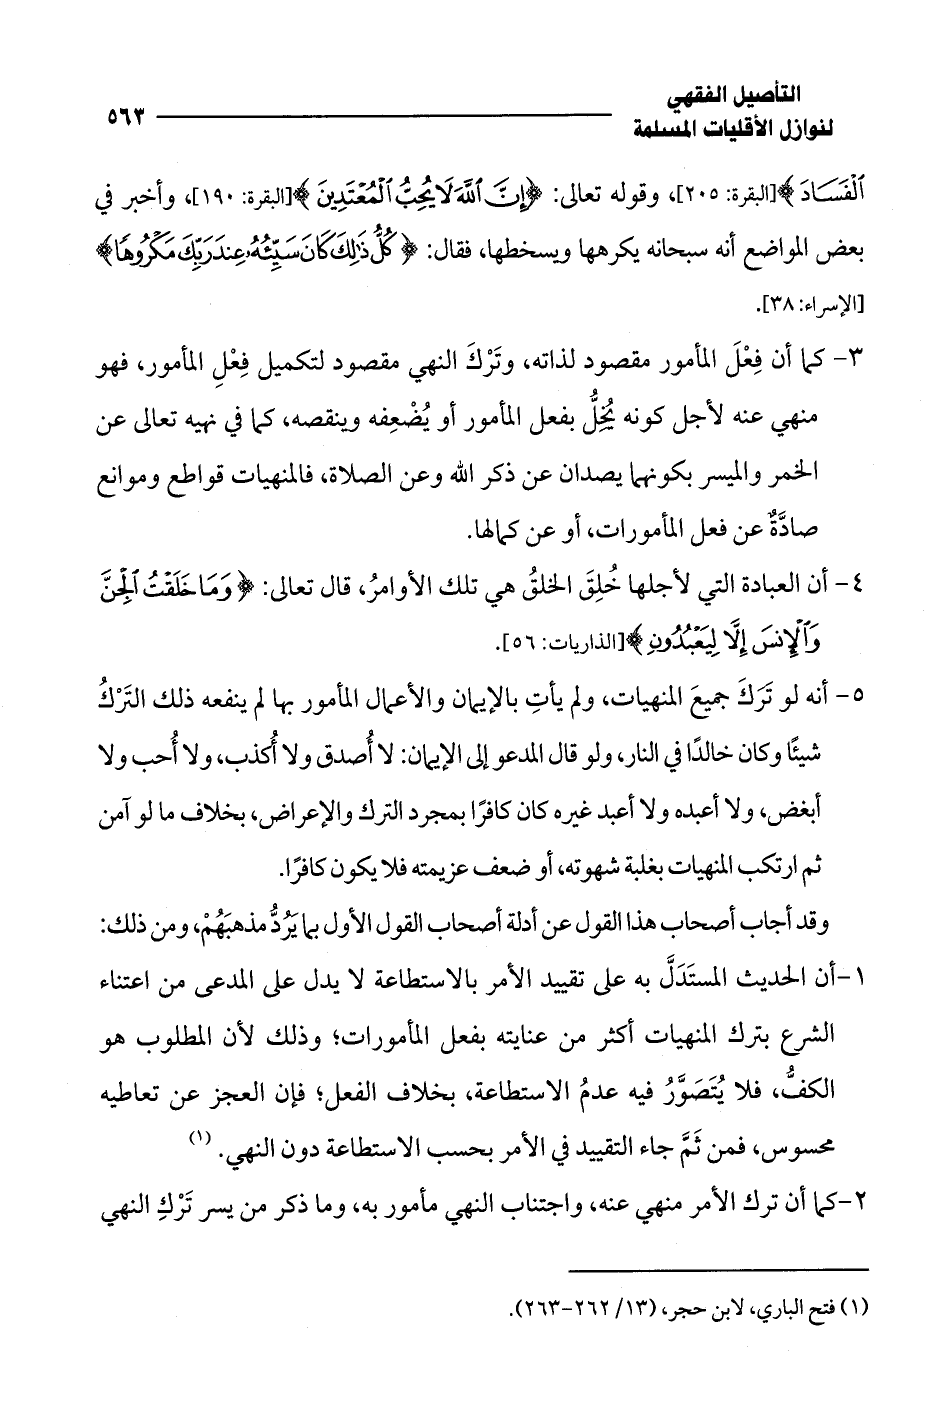 التأصيل الفقهي
لنوازل الأقليات المسلمة
٥٦٣
ٱلْفَسَادَ ﴾[البقرة: ٢٠٥]، وقوله تعالى: ﴿إِنَّ ٱللَّهَ لَا يُحِبُّ ٱلْمُعْتَدِينَ ﴾[البقرة: ١٩٠]، وأخبر في
بعض المواضع أنه سبحانه يكرهها ويسخطها، فقال: ﴿ كُلُّ ذَٰلِكَ كَانَ سَيِّئُهُۥ عِندَ رَبِّكَ مَكْرُوهًا﴾
[الإسراء: ٣٨].
٣- كما أن فِعْلَ المأمور مقصود لذاته، وتَرْكَ النهي مقصود لتكميل فِعْلِ المأمور، فهو
منهي عنه لأجل كونه يُخِلُّ بفعل المأمور أو يُضْعِفه وينقصه، كما في نهيه تعالى عن
الخمر والميسر بكونهما يصدان عن ذكر الله وعن الصلاة، فالمنهيات قواطع وموانع
صادَّةٌ عن فعل المأمورات، أو عن كمالها.
٤- أن العبادة التي لأجلها خُلِقَ الخلقُ هي تلك الأوامرُ، قال تعالى: ﴿ وَمَا خَلَقْتُ ٱلْجِنَّ
وَٱلْإِنسَ إِلَّا لِيَعْبُدُونِ ﴾[الذاريات: ٥٦].
٥- أنه لو تَرَكَ جميعَ المنهيات، ولم يأتِ بالإيمان والأعمال المأمور بها لم ينفعه ذلك التَرْكُ
شيئًا وكان خالدًا في النار، ولو قال المدعو إلى الإيمان: لا أُصدق ولا أُكذب، ولا أُحب ولا
أبغض، ولا أعبده ولا أعبد غيره كان كافرًا بمجرد الترك والإعراض، بخلاف ما لو آمن
ثم ارتكب المنهيات بغلبة شهوته، أو ضعف عزيمته فلا يكون كافرًا.
وقد أجاب أصحاب هذا القول عن أدلة أصحاب القول الأول بما يَرُدُّ مذهبَهُمْ، ومن ذلك:
١-أن الحديث المستَدَلَّ به على تقييد الأمر بالاستطاعة لا يدل على المدعى من اعتناء
الشرع بترك المنهيات أكثر من عنايته بفعل المأمورات؛ وذلك لأن المطلوب هو
الكفُّ، فلا يُتَصَوَّرُ فيه عدمُ الاستطاعة، بخلاف الفعل؛ فإن العجز عن تعاطيه
محسوس، فمن ثَمَّ جاء التقييد في الأمر بحسب الاستطاعة دون النهي. (١)
٢-كما أن ترك الأمر منهي عنه، واجتناب النهي مأمور به، وما ذكر من يسر تَرْكِ النهي
(١) فتح الباري، لابن حجر، (١٣/ ٢٦٢-٢٦٣).